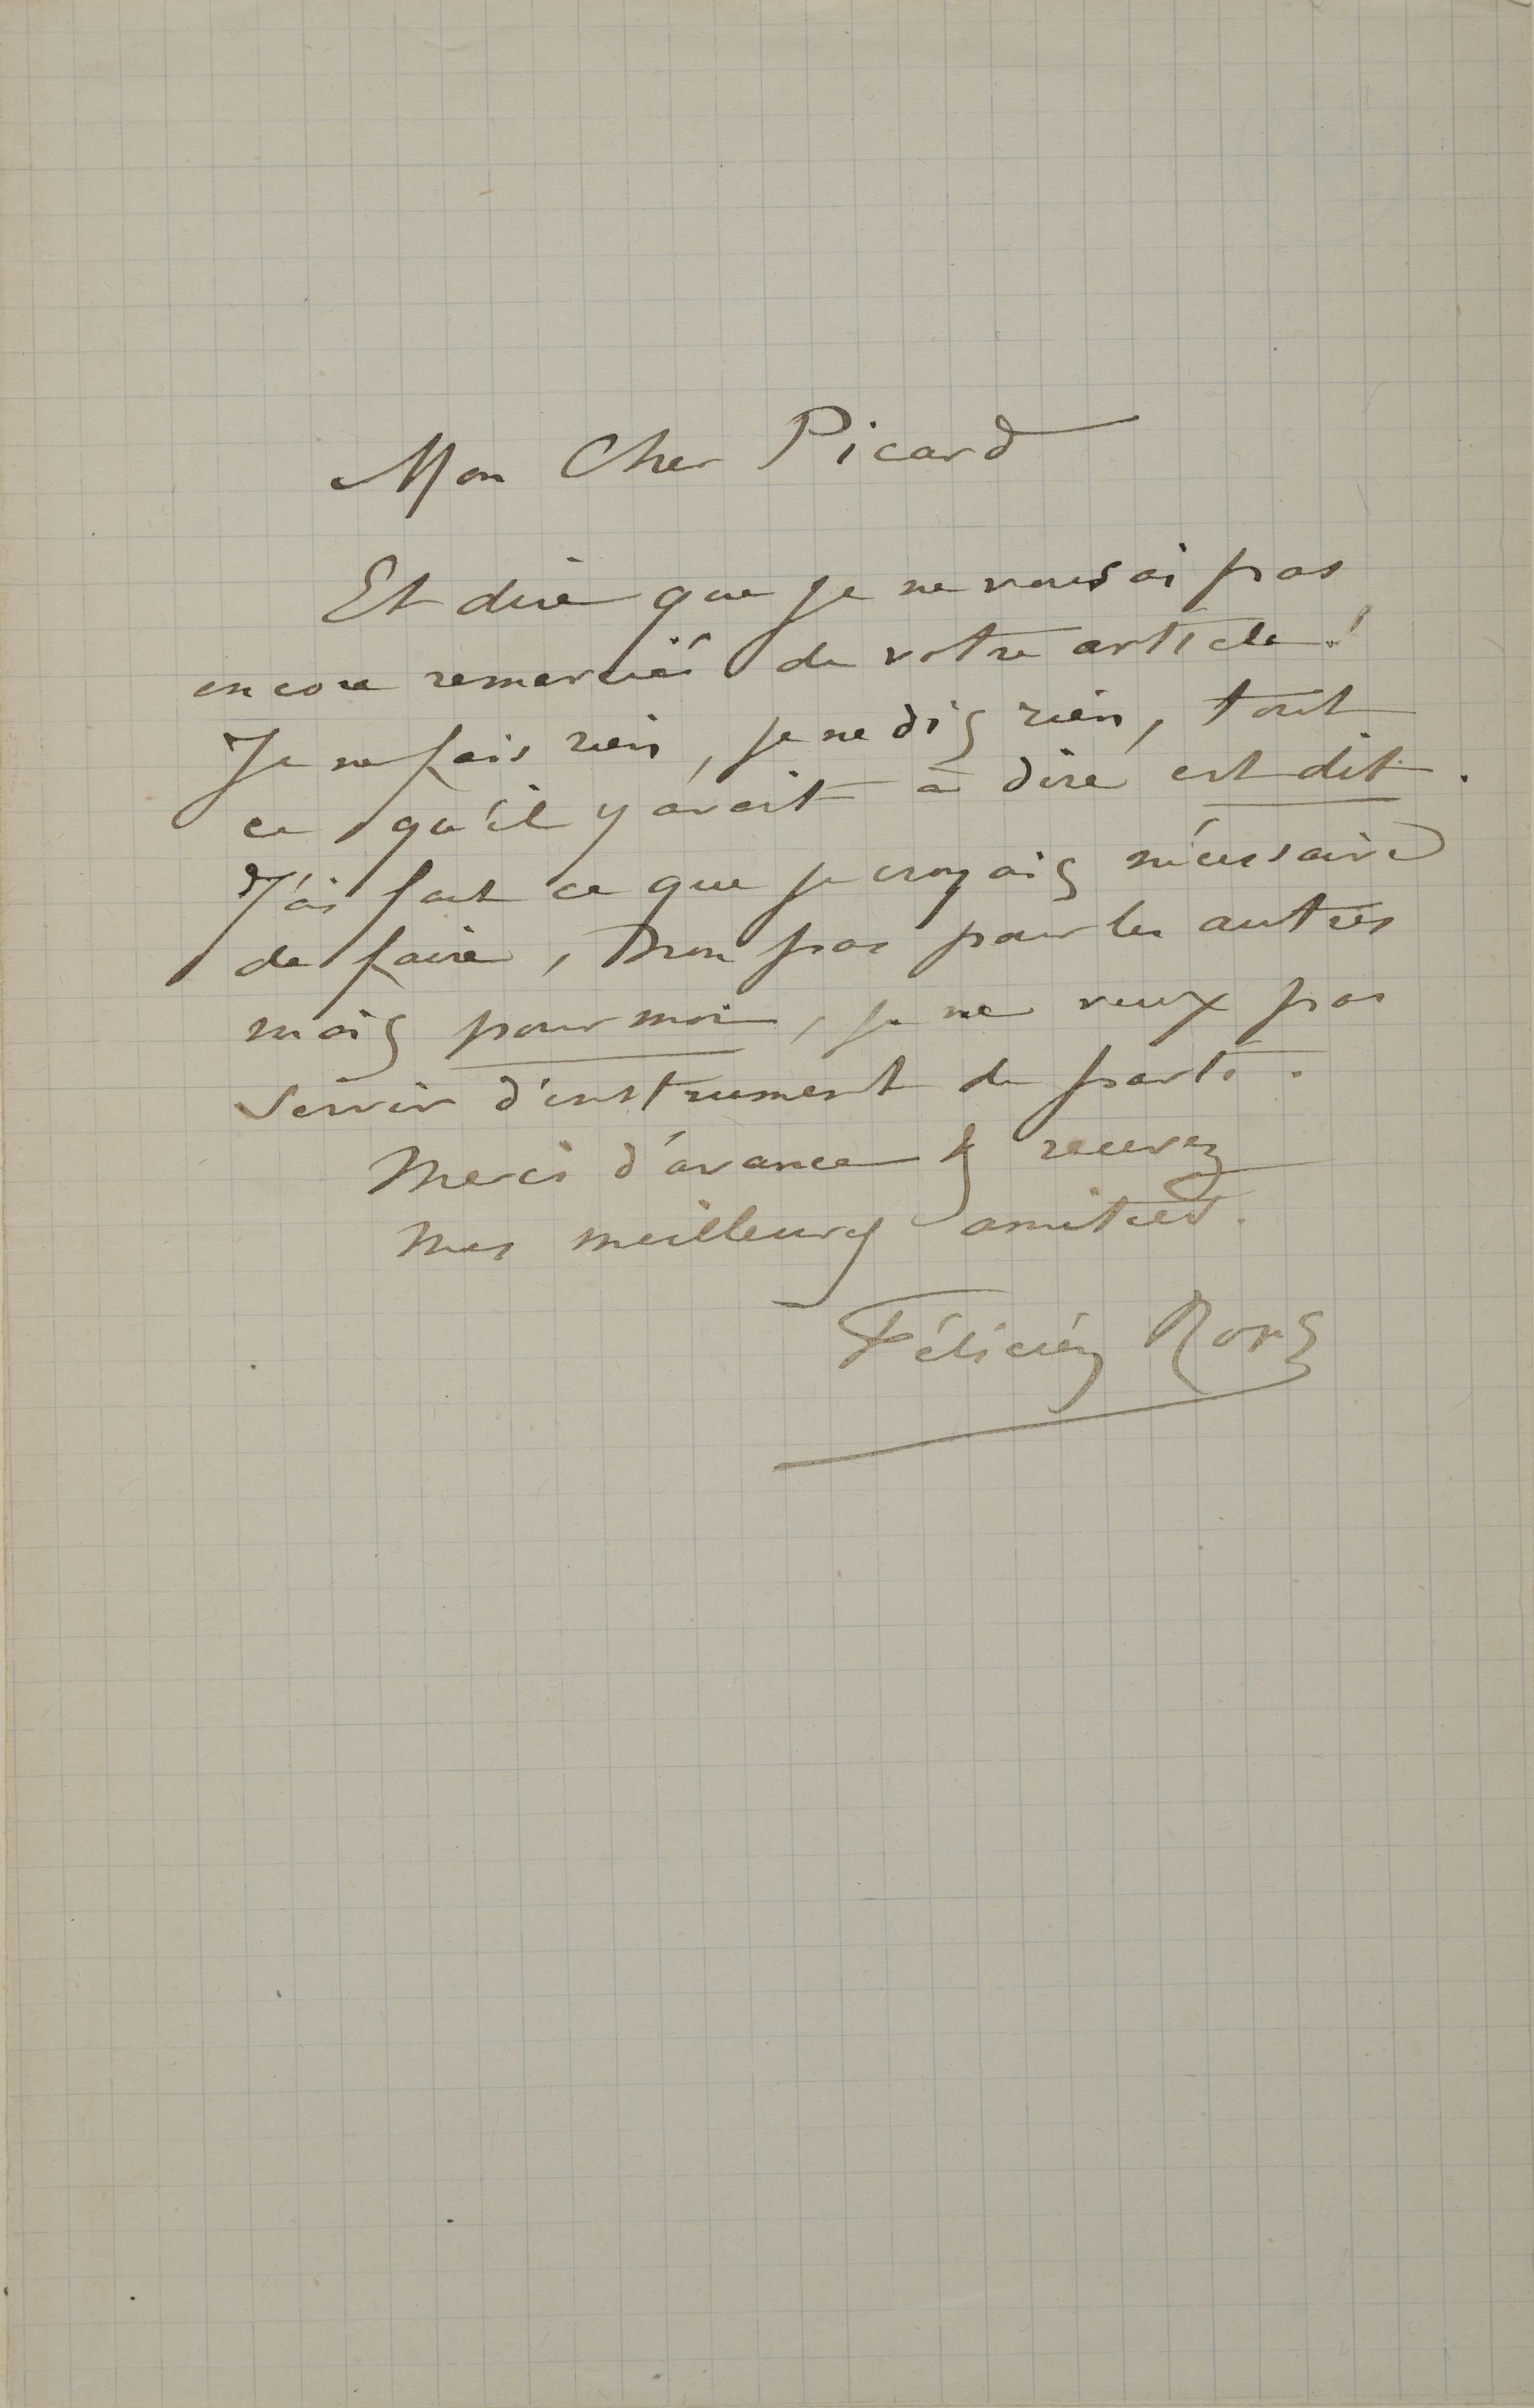 Mon Cher Picard
Et dire que je ne vous ai pas
encore remercié de votre article !
Je ne fais rien, je ne dis rien, tout
ce qu'il y avait à dire est dit.
J'ai fait ce que je croyais nécessaire
de faire, non pas pour les autres
mais pour moi, je ne veux pas
servir d'instrument de parti.
Merci d'avance & recevez
mes meilleures amitiés.
Félicien Rops